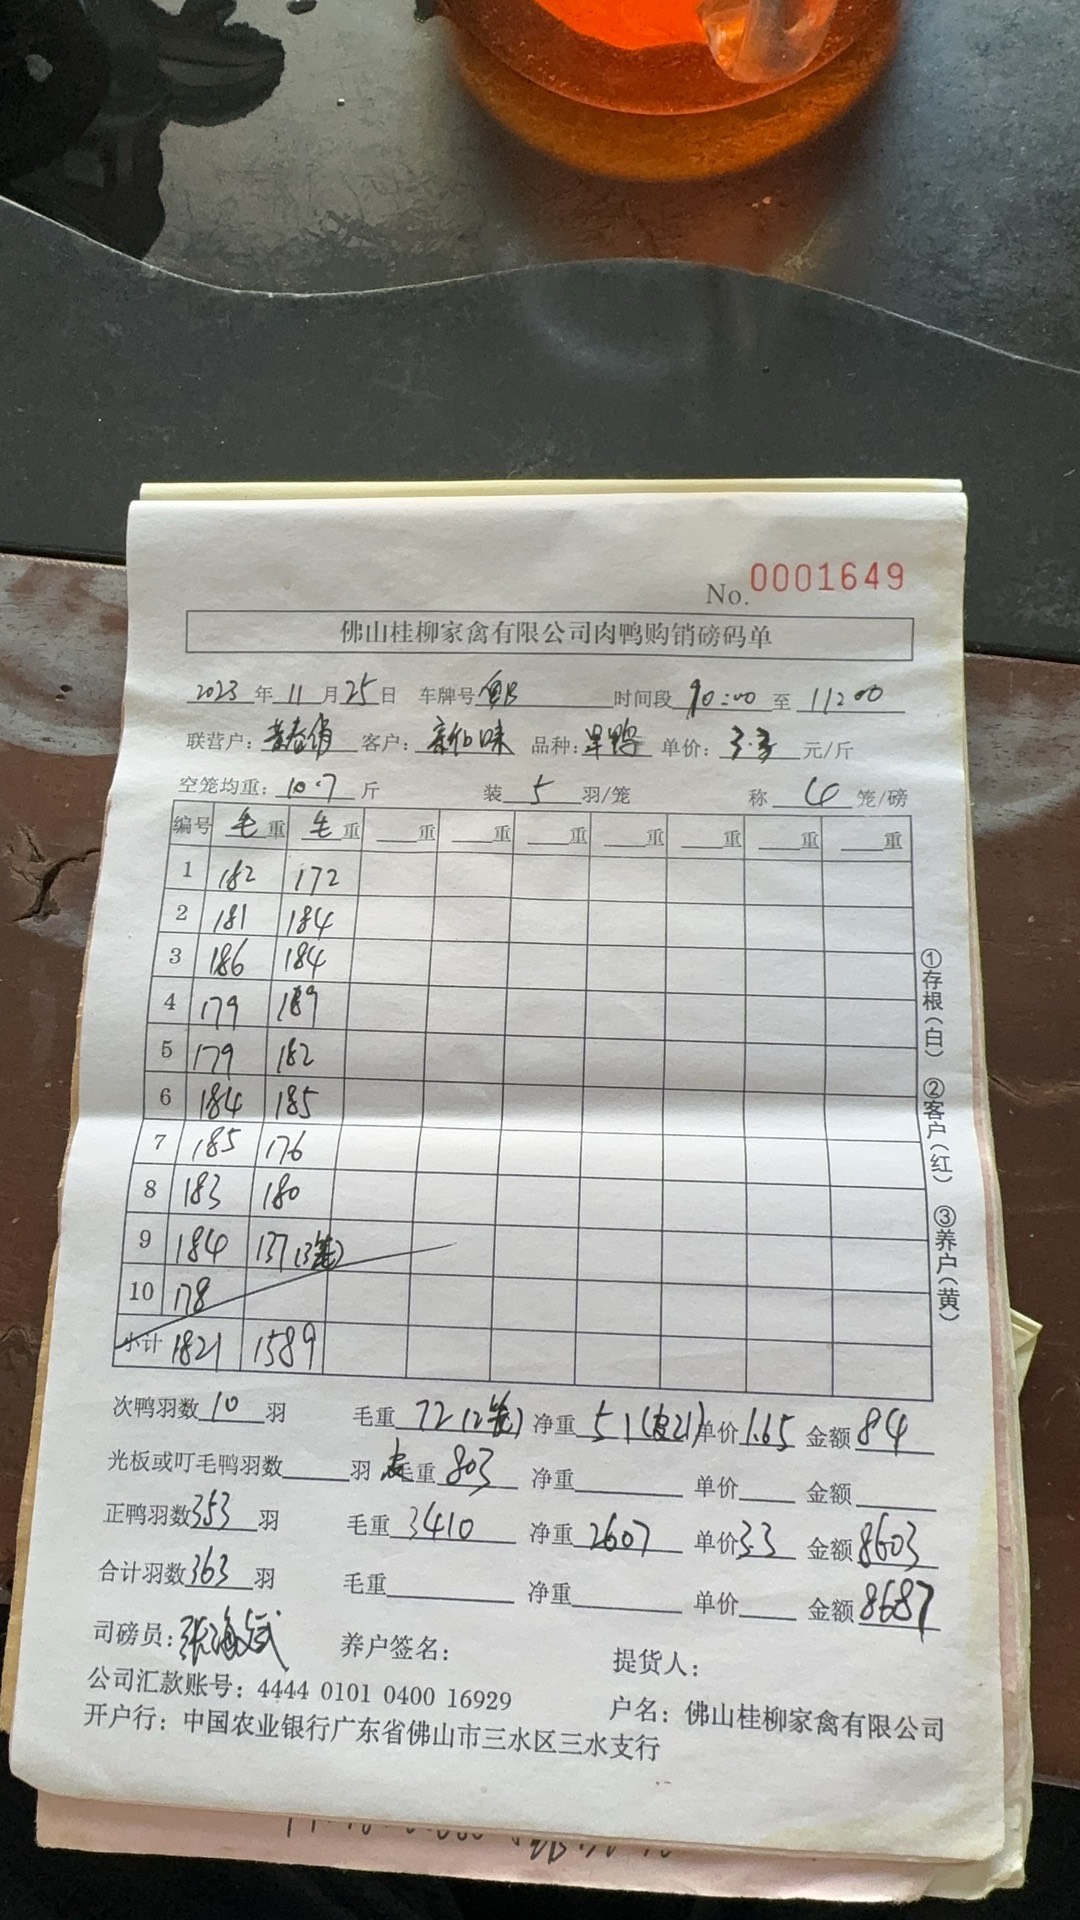 No. 0001649
佛山桂柳家禽有限公司肉鸭购销磅码单
2023 年 11 月 25 日 车牌号 时间段 10:00 至 11:00
联营户: 黄春娟 客户: 味 品种: 旱鸭 单价: 3.3 元/斤
空笼均重: 10.7 斤 装 5 羽/笼 称 4 笼/磅
编号 毛重 毛重 重 重 重 重 重 重 重
1 182 172
2 181 184
3 186 184
4 179 189
5 179 182
6 184 185
7 185 176
8 183 180
9 184 137 (3笼)
10 178
小计 1821 1589
次鸭羽数 10 羽 毛重 72 (2笼) 净重 51 (皮21) 单价 1.65 金额 84
光板或叮毛鸭羽数 羽 皮重 803 净重 单价 金额
正鸭羽数 353 羽 毛重 3410 净重 2607 单价 3.3 金额 8603
合计羽数 363 羽 毛重 净重 单价 金额 8687
司磅员: 养户签名: 提货人:
公司汇款账号: 4444 0101 0400 16929 户名: 佛山桂柳家禽有限公司
开户行: 中国农业银行广东省佛山市三水区三水支行
①存根(白) ②客户(红) ③养户(黄)